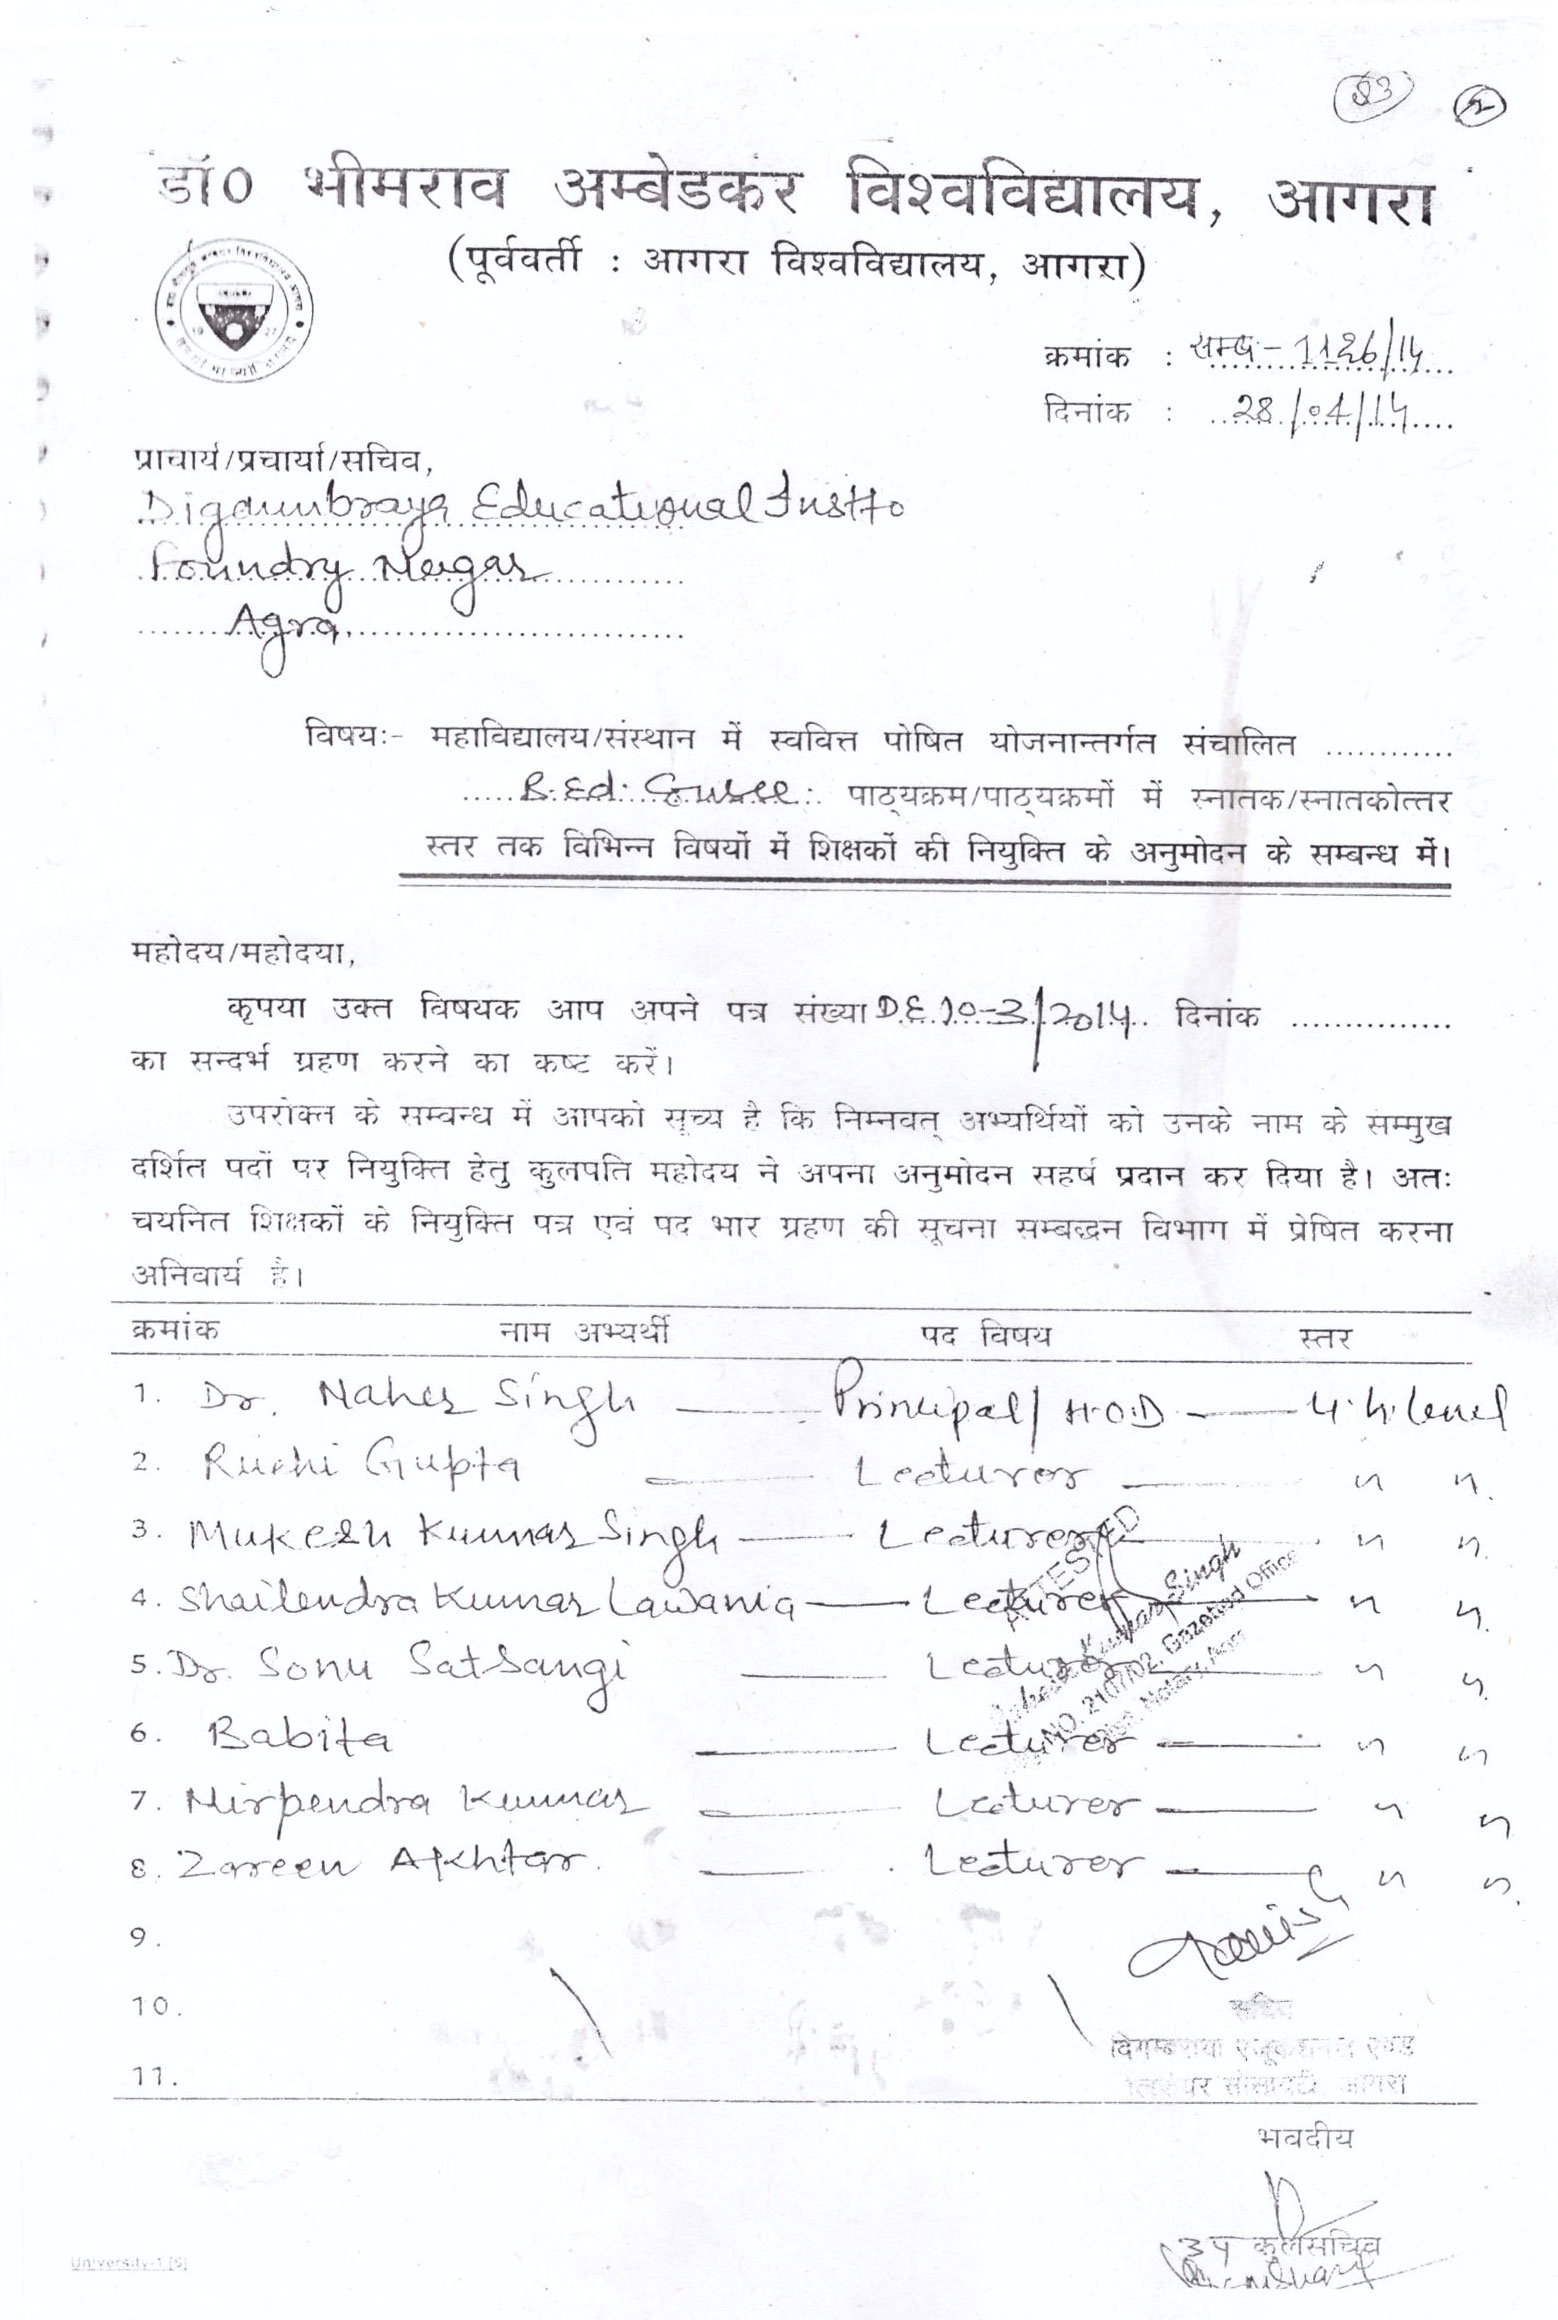 83
डॉ0 भीमराव अम्बेडकर विश्वविद्यालय, आगरा
(पूर्ववर्ती : आगरा विश्वविद्यालय, आगरा)
क्रमांक : सम्ब:- 1126/14
दिनांक : 28/04/14
प्राचार्य/प्रचार्या/सचिव,
Digambraya Educational Instto
Foundry Nagar
Agra
विषयः- महाविद्यालय/संस्थान में स्ववित्त पोषित योजनान्तर्गत संचालित ............
B.Ed. Course पाठ्यक्रम/पाठ्यक्रमों में स्नातक/स्नातकोत्तर
स्तर तक विभिन्न विषयों में शिक्षकों की नियुक्ति के अनुमोदन के सम्बन्ध में।
महोदय/महोदया,
कृपया उक्त विषयक आप अपने पत्र संख्या D.E.10-3/2014 दिनांक ...............
का सन्दर्भ ग्रहण करने का कष्ट करें।
उपरोक्त के सम्बन्ध में आपको सूच्य है कि निम्नवत् अभ्यर्थियों को उनके नाम के सम्मुख
दर्शित पदों पर नियुक्ति हेतु कुलपति महोदय ने अपना अनुमोदन सहर्ष प्रदान कर दिया है। अतः
चयनित शिक्षकों के नियुक्ति पत्र एवं पद भार ग्रहण की सूचना सम्बद्धन विभाग में प्रेषित करना
अनिवार्य है।
क्रमांक नाम अभ्यर्थी पद विषय स्तर
1. Dr. Naher Singh — Principal/H.O.D — level
2. Ruchi Gupta — Lecturer — " "
3. Mukesh Kumar Singh — Lecturer — " "
4. Shailendra Kumar Lawania — Lecturer — " "
5. Dr. Sonu Satsangi — Lecturer — " "
6. Babita — Lecturer — " "
7. Nirpendra Kumar — Lecturer — " "
8. Zareen Akhtar. — Lecturer — " "
ATTESTED
Kumar Singh
Gazetted Office
Notary, Agra
9.
10.
11.
सचिव
दिगम्बराया एजूकेशनल एण्ड
सोसायटी आगरा
भवदीय
उप कुलसचिव
University-1 [5]